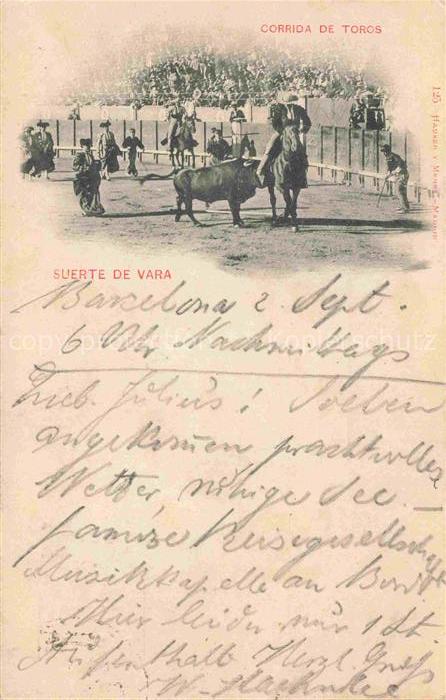 CORRIDA DE TOROS
125 HAUSER Y MENET.-MADRID
SUERTE DE VARA
Barzelona 2. Sept.
6 Uhr Nachmittags
Lieb. Julius! Soeben
angekomen prachtvolles
Wetter, ruhige See. –
famose Reisegesellschaft
Musikkapelle an Bord
Hier leider nur 1 St.
Aufenthalt Herzl. Gruß
W.